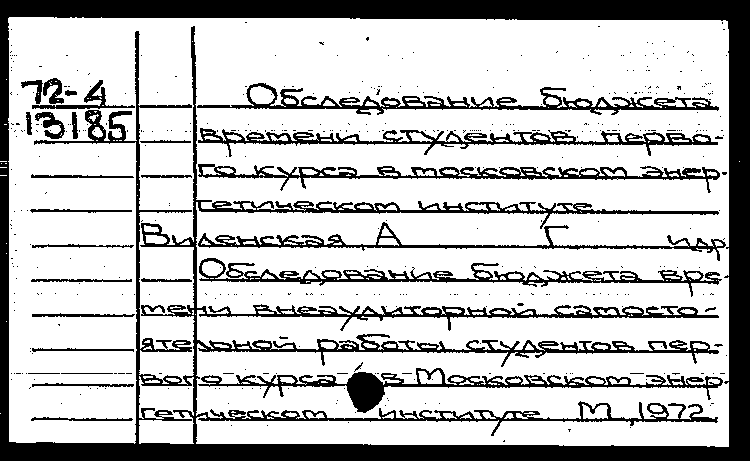 72-4 Обследование бюджета
13185 времени студентов перво-
го курса в московском энер-
гетическом институте
Виленская А Г идр
Обследование бюджета вре-
мени внеаудиторной самосто-
ятельной работы студентов пер-
вого курса в Московском энер-
гетическом институте М,1972